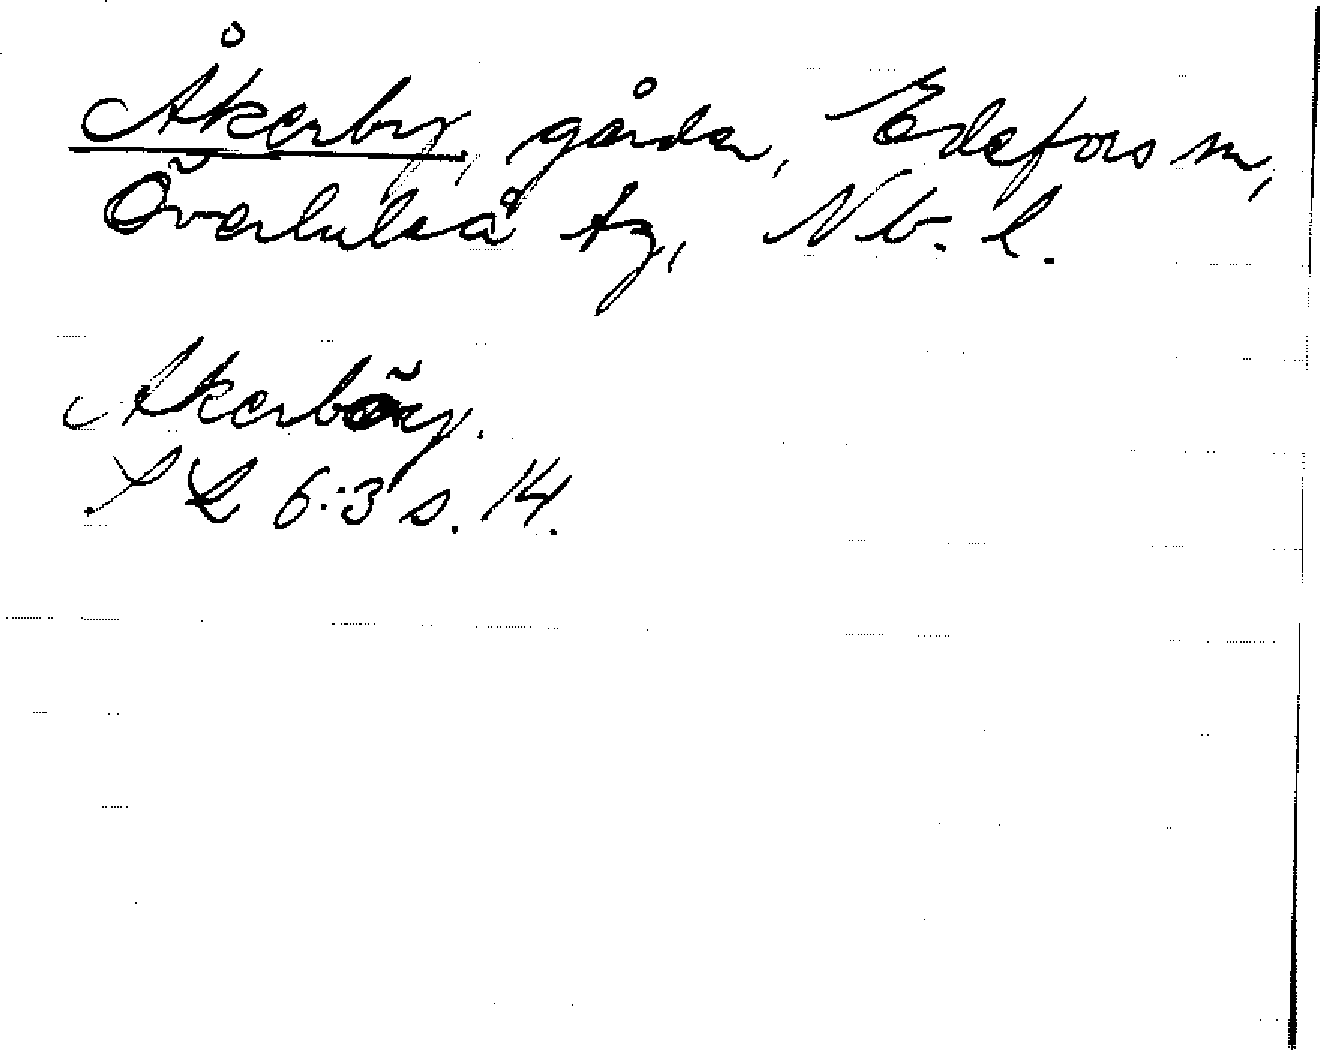 Åkerby, gårdar, Edefors sn,
Överluleå tg, Nb. l.
Akerböy.
SL 6:3 s. 14.